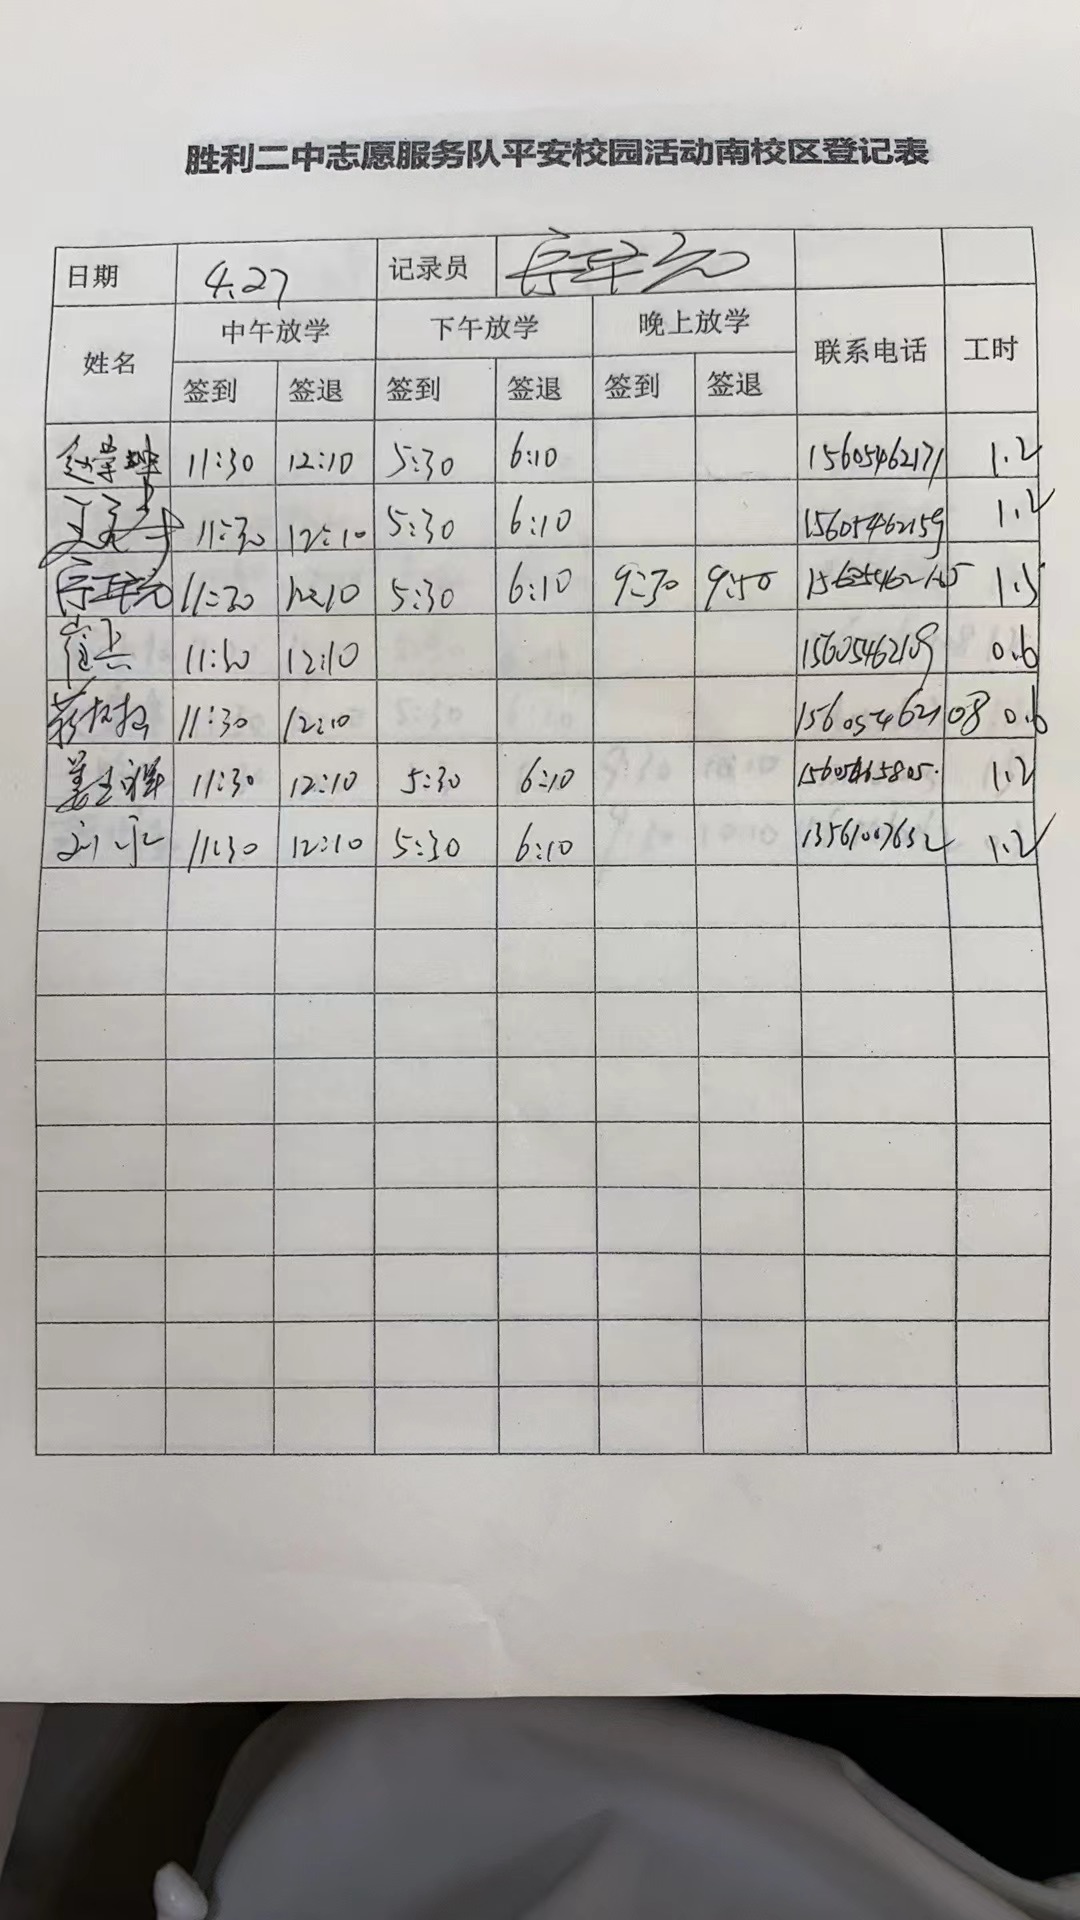 胜利二中志愿服务队平安校园活动南校区登记表
日期 4.27 记录员
姓名 中午放学 下午放学 晚上放学 联系电话 工时
签到 签退 签到 签退 签到 签退
11:30 12:10 5:30 6:10 15605462171 1.2
11:30 12:10 5:30 6:10 15605462159 1.2
11:30 12:10 5:30 6:10 9:30 9:50 1.5
崔兵 11:30 12:10 15605462109 0.6
11:30 12:10 15605462108 0.6
11:30 12:10 5:30 6:10 1.2
11:30 12:10 5:30 6:10 13561007632 1.2